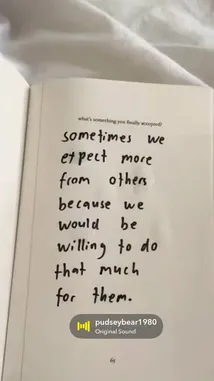 what's something you finally accepted?
sometimes we
expect more
from others
because we
would be
willing to do
that much
for them.
pudseybear1980
Original Sound